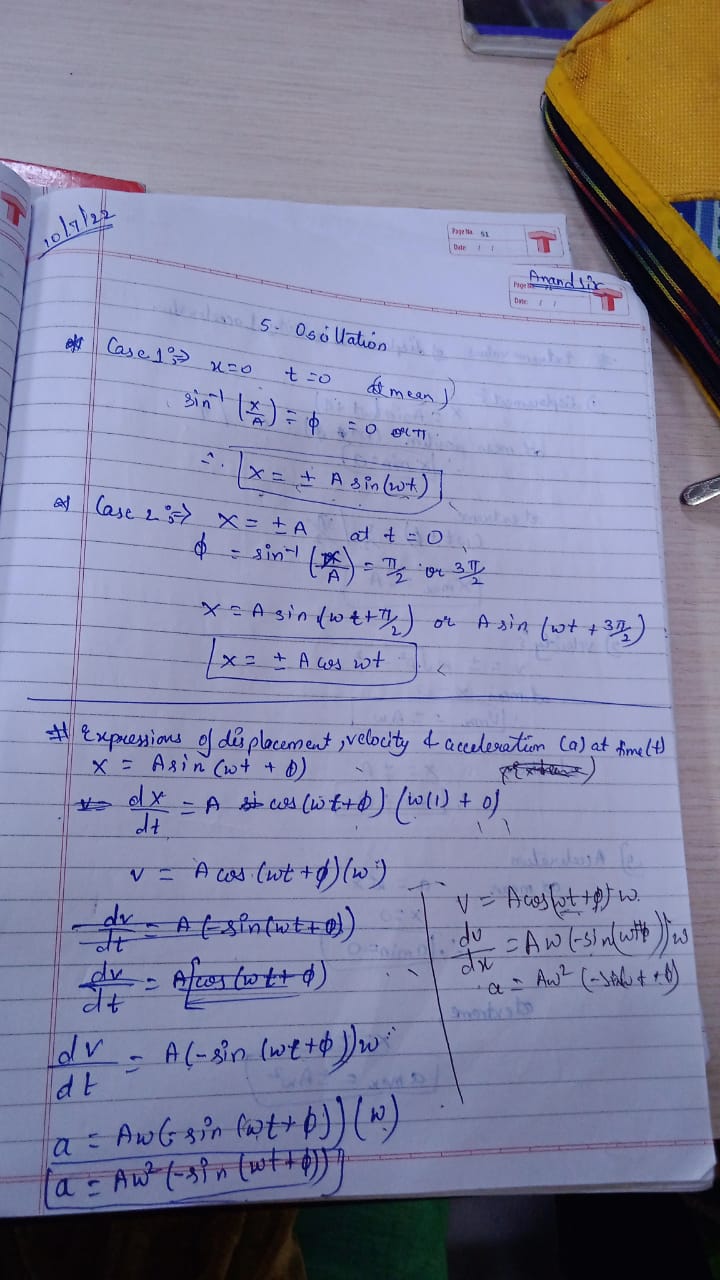 10/7/22
Page No. 51
Date: / /
Anand Sir
Page No.
Date: / /
5. Oscillation
Case 1 :⇒ x=0 t=0 (at mean)
sin⁻¹ (x/A) = φ = 0 or π
∴ x = ± A sin(wt)
Case 2 :⇒ x = ± A at t = 0
φ = sin⁻¹ (x/A) = π/2 or 3π/2
x = A sin (wt + π/2) or A sin (wt + 3π/2)
x = ± A cos wt
# Expressions of displacement, velocity & acceleration (a) at time (t)
x = A sin (wt + φ)
dx/dt = A cos (wt + φ) (w(1) + 0)
v = A cos (wt + φ) (w)
dv/dt = A (-sin (wt + φ))
dv/dt = A cos (wt + φ)
dv/dt = A (-sin (wt + φ)) w
a = Aw (-sin (wt + φ)) (w)
a = Aw² (-sin (wt + φ))
v = A cos (wt + φ) w
dv/dx = Aw (-sin (wt + φ)) w
a = Aw² (-sin (wt + φ))